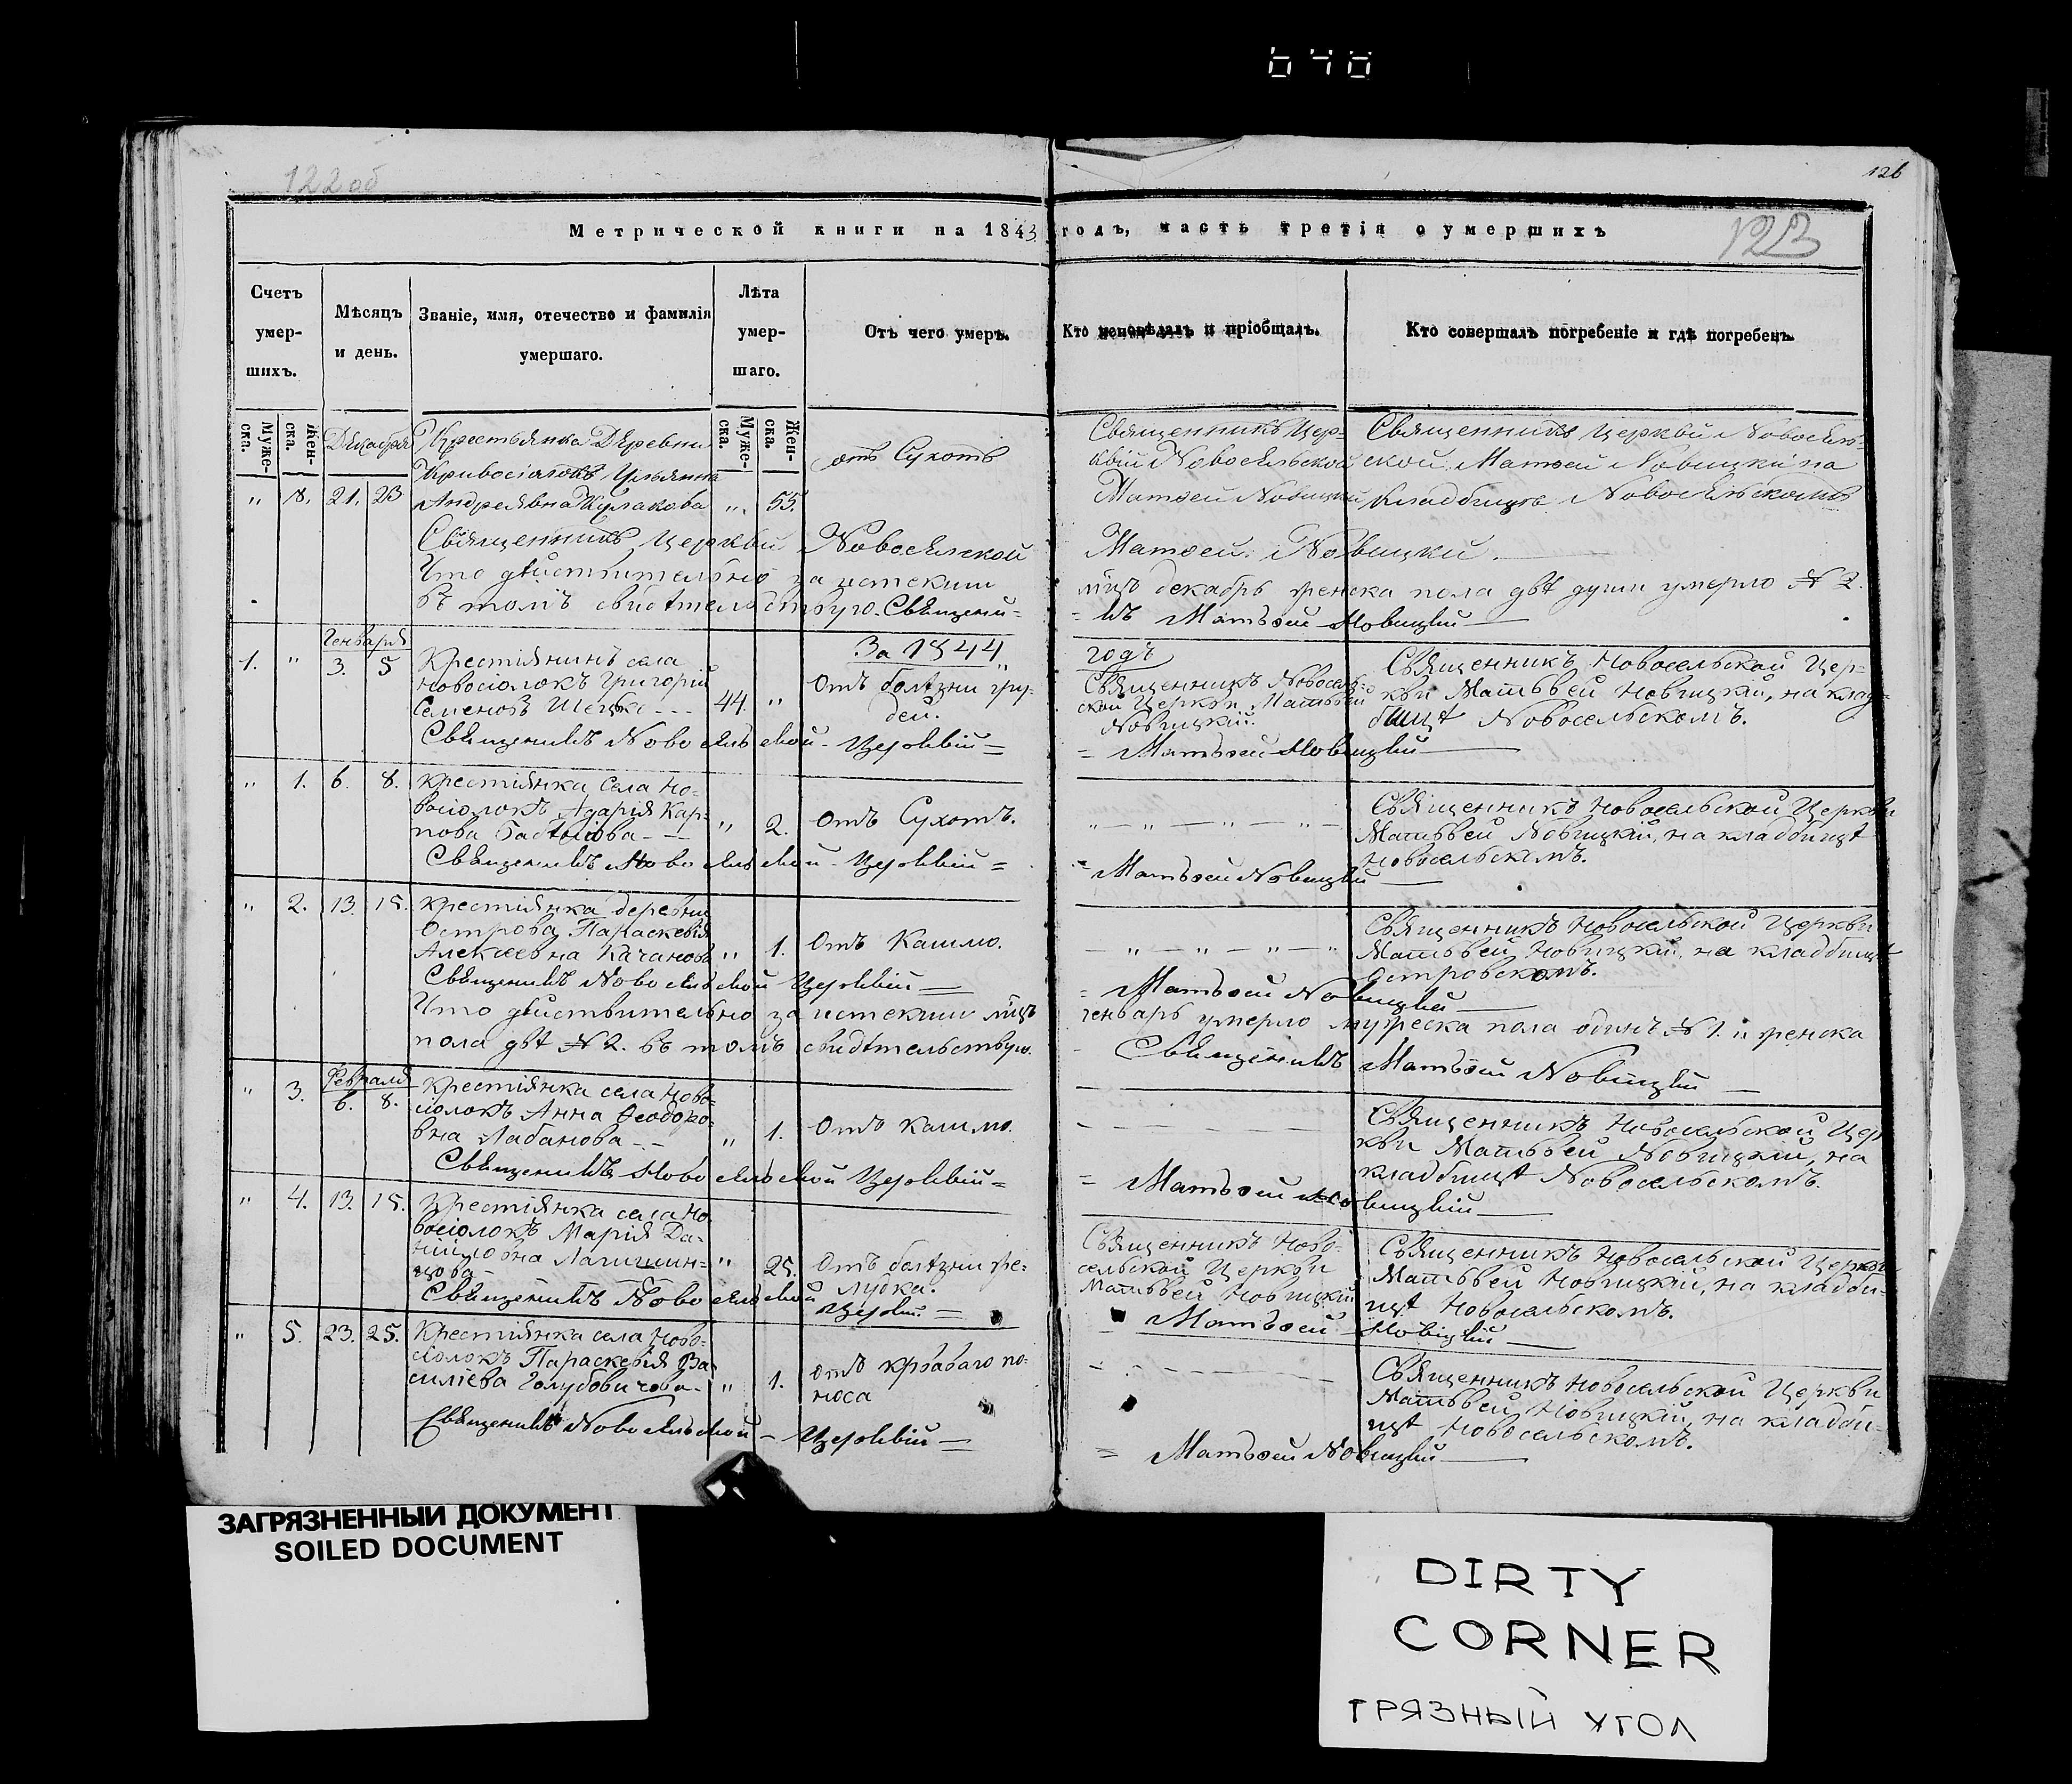 640
122 об
126
Метрической книги на 1843 годъ, часть третія о умершихъ
123
Счетъ умер-шихъ.
Мѣсяцъ и день.
Званіе, имя, отечество и фамилія умершаго.
Лѣта умер-шаго.
Отъ чего умеръ.
Кто исповѣдалъ и пріобщалъ.
Кто совершалъ погребеніе и гдѣ погребенъ.
Муже-ска.
Жен-ска.
Муже-ска.
Жен-ска.
Декабря
Крестьянка Деревни
Кривосіолокъ Ульянна
" 8. 21. 23 Андреявна Кулакова " 55.
отъ Сухотъ
Священникъ Цер-
квій Новосельской
Матѳей Новицкий
Священникъ Церкви Новосель-
ской Матѳей Новицкій на
Кладбищѣ Новосельскомъ
Священникъ Церквій Новоселской Матѳей Новицкій.
Что дѣйствительно за истекши мцъ декабрь женска пола двѣ души умерло № 2.
въ томъ свидѣтельствую. Священи= =къ Матѳей Новицкій
За 1844 годъ
Генваря
1. " 3. 5 Крестіянинъ села
Новосіолокъ Григорій
Семеновъ Шецко 44. "
Отъ болѣзни гру-
дей.
Священникъ Новосель-
ской Церкви Матьвей
Новицкій.
Священникъ Новосельской Цер-
кви Матьвей Новицкій, на клад-
бищѣ Новосельскомъ.
Священикъ Новоселской Церквій= = Матѳей Новицкій
" 1. 6. 8. Крестіянка Села Но-
восіолокъ Дарія Кар-
пова " 2.
Отъ Сухотъ.
" — " — " — "
Священникъ Новосельской Церкви
Матьвей Новицкій, на кладбищѣ
Новосельскомъ.
Священикъ Новоселской Церквій= = Матѳей Новицкій
" 2. 13. 15. Крестіянка деревни
Острова Параскевія
Алексеевна Качанова " 1.
Отъ Кашлю.
— " — " — " — "
Священникъ Новосельской Церкви
Матьвей Новицкій, на кладбищѣ
Островскомъ.
Священикъ Новоселской Церквій = Матѳей Новицкій
Что дѣйствительно за истекши мцъ генварь умерло мужеска пола одинъ № 1. и женска
пола двѣ № 2. въ томъ свидѣтельствую. Священикъ Матѳей Новицкій
Февраля
" 3. 6. 8. Крестіянка села Ново-
сіолокъ Анна Ѳеодоро-
вна Лабанова " 1.
Отъ Кашлю.
Священникъ Новосельской Цер
кви Матьвей Новицкій, на
кладбищѣ Новосельскомъ.
Священикъ Новоселской Церквій= = Матѳей Новицкій
" 4. 13. 15. Крестіянка села Но-
восіолокъ Марія Да-
ніиловна Лапицин=
цова " 25.
Отъ болѣзни же-
лудка.
Священникъ Ново-
сельской Церкви
Матьвей Новицкій
Священникъ Новосельской Церкви
Матьвей Новицкій, на кладби-
щѣ Новосельскомъ.
Священикъ Новоселской Церкви = = Матѳей Новіцкій
" 5. 23. 25. Крестіянка села Ново-
сіолокъ Параскевія Ва-
силіева Голубовичова " 1.
отъ кроваваго по-
носа
Священникъ Новосельской Церкви
Матьвей Новицкій, на кладби-
щѣ Новосельскомъ.
Священикъ Новоселской Церквій = Матѳей Новицкій
ЗАГРЯЗНЕННЫЙ ДОКУМЕНТ
SOILED DOCUMENT
DIRTY
CORNER
ГРЯЗНЫЙ УГОЛ